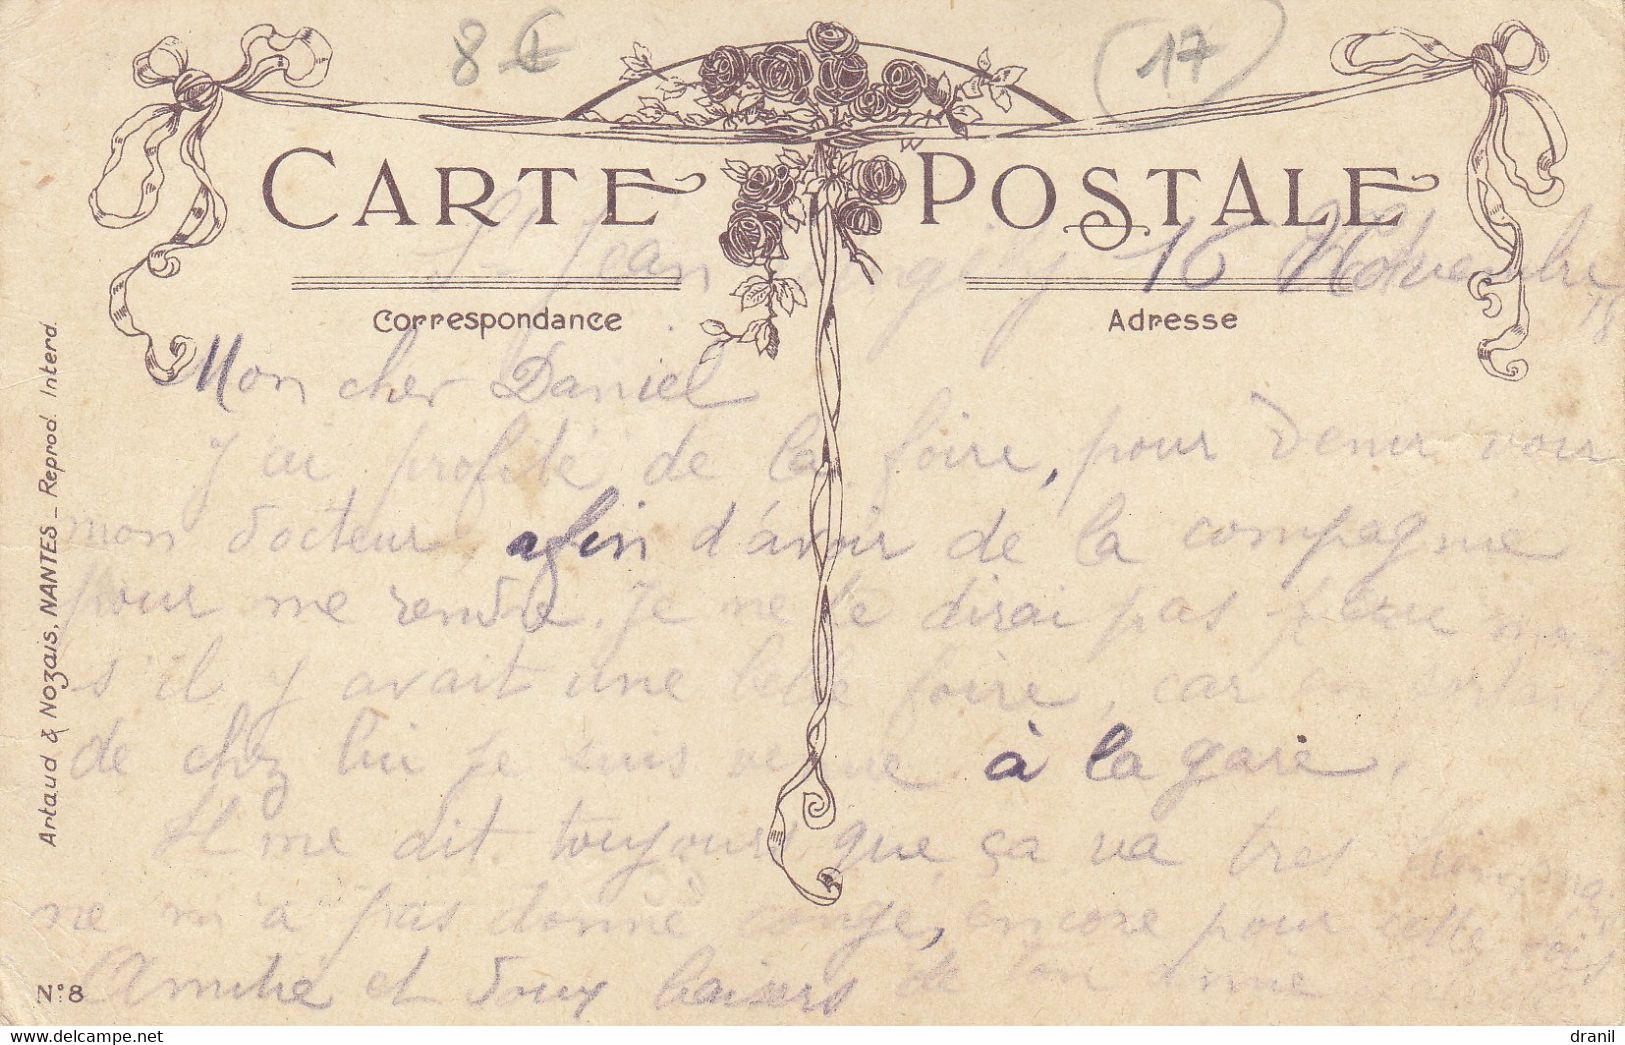 8 €
17
CARTE POSTALE
Correspondance
Adresse
St Jean d'Angély 16 Novembre
18
Mon cher Daniel
J'ai profité de la foire, pour venir voir
mon docteur, afin d'avoir de la compagnie
pour me rendre. Je ne te dirai pas
s'il y avait une belle foire, car en sortant
de chez lui je suis venue à la gare.
Il me dit toujours que ça va tres bien
ne m'a pas donné congé, encore pour cette fois
Amitié et doux baisers de ton amie
Artaud & Nozais, NANTES _ Reprod. Interd.
N° 8
dranil